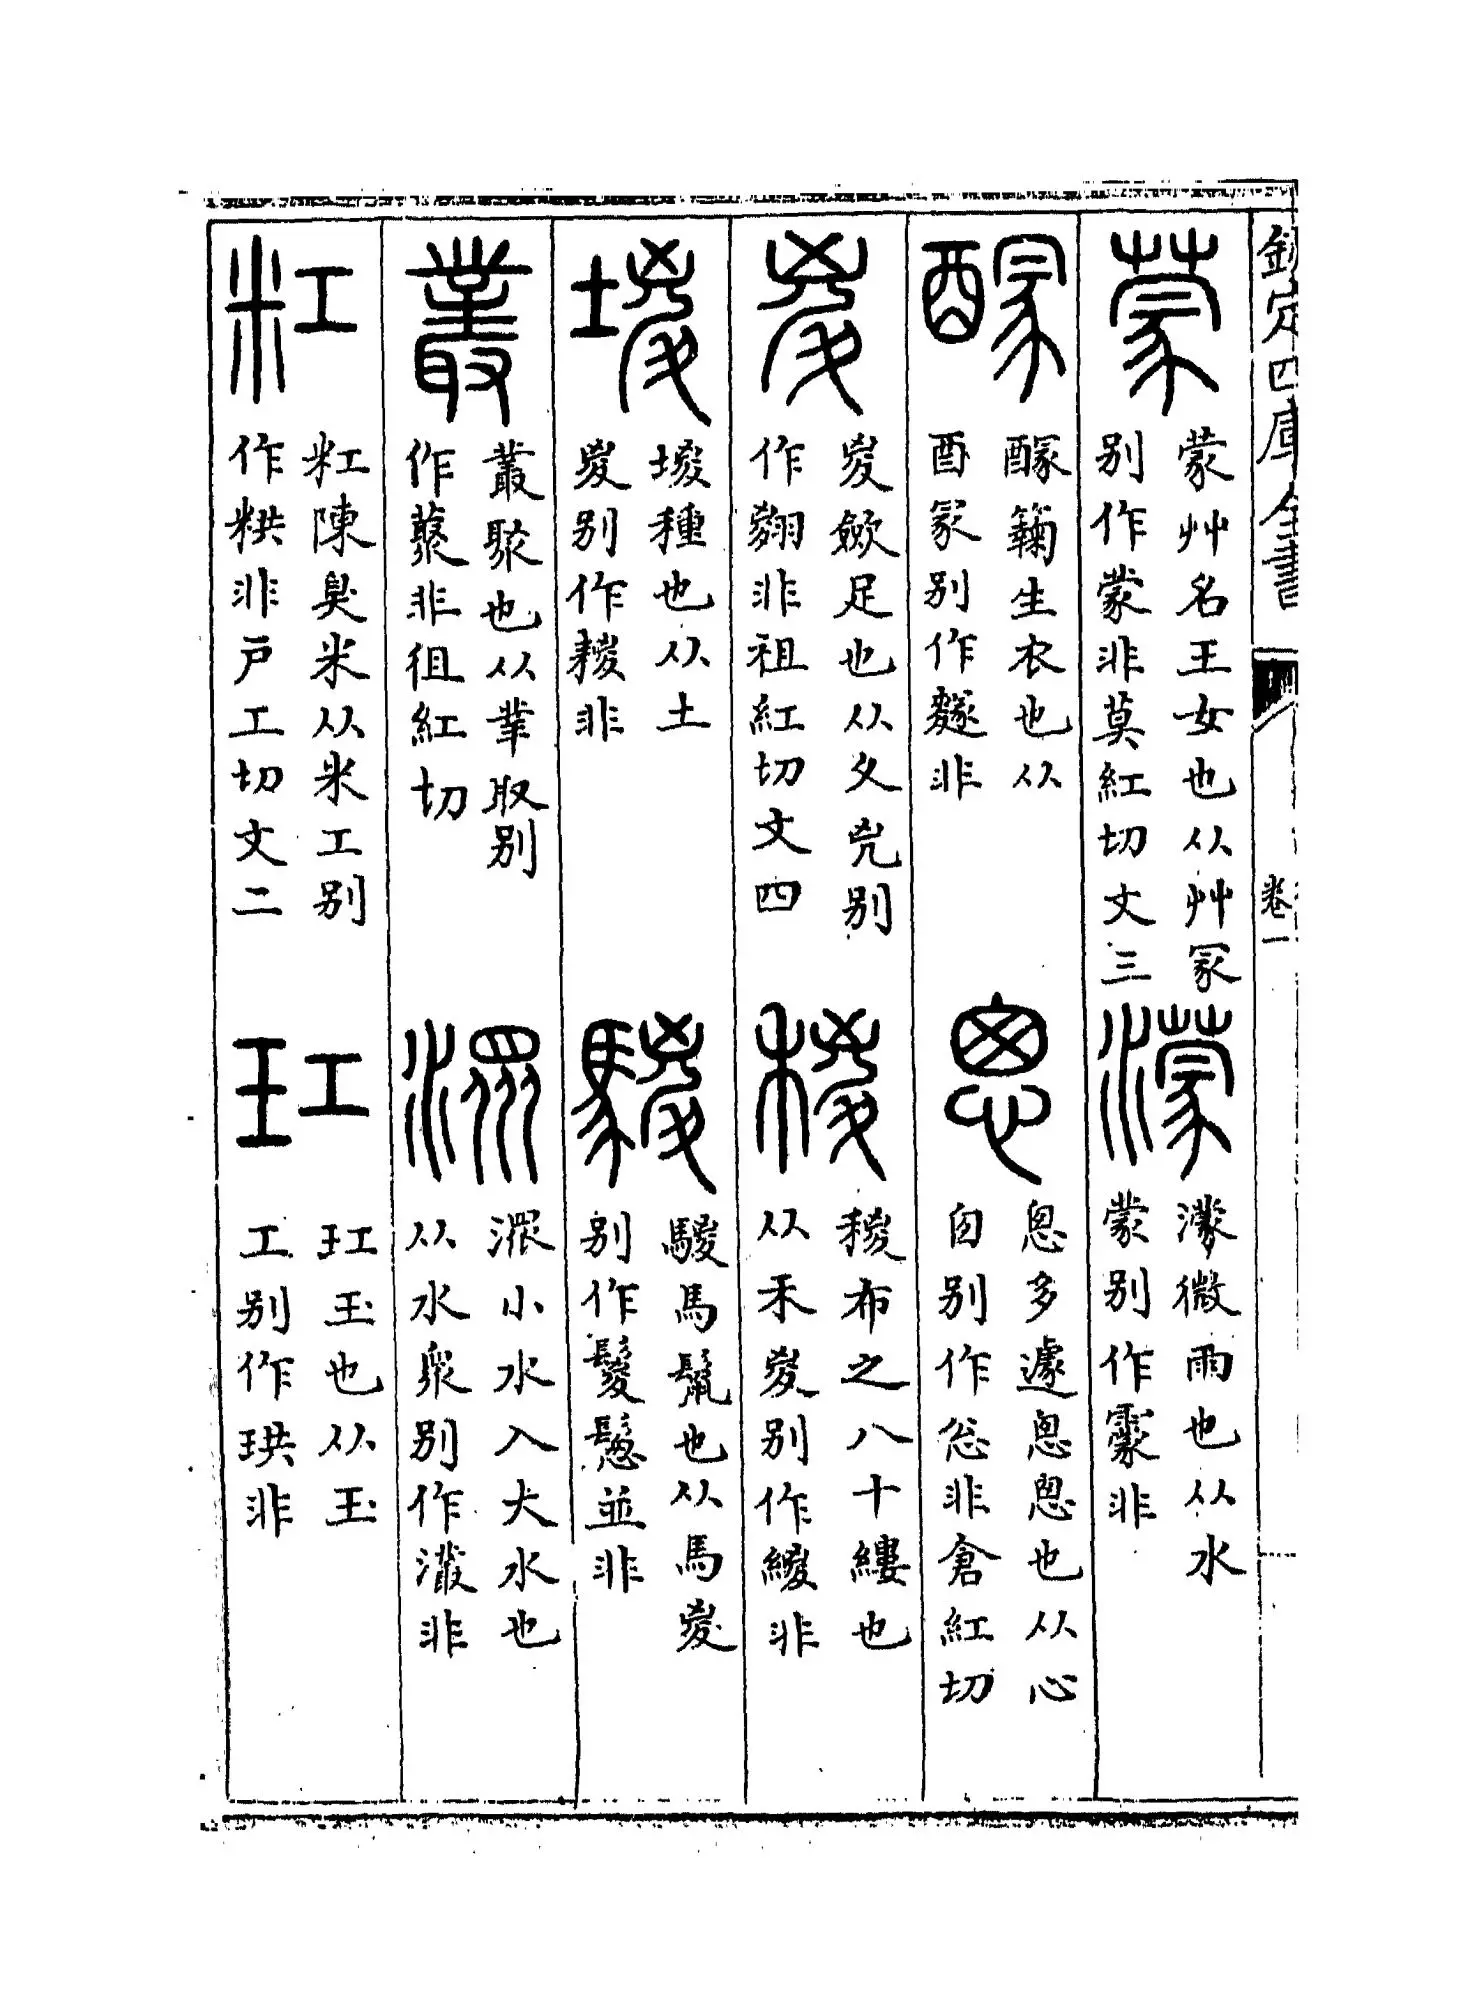 欽定四庫全書
卷一
蒙
蒙艸名王女也从艸冡
别作蒙非莫紅切文三
濛
濛微雨也从水
蒙别作靀非
醵
醵籟生衣也从
酉冡别作䴿非
悤
悤多遽悤悤也从心
囱别作忩非倉紅切
夋
㚇斂足也也从夊兇别
作翪非祖紅切文四
稯
稯布之八十縷也
从禾㚇别作緵非
堫
堫種也从土
㚇别作䅜非
騣
騣馬鬣也从馬㚇
别作鬉鬆並非
叢
叢聚也从丵取别
作藂非徂紅切
潨
潨小水入大水也
从水眾别作灇非
粠
粠陳臭米从米工别
作粠非戸工切文二
玒
玒玉也从玉
工别作珙非